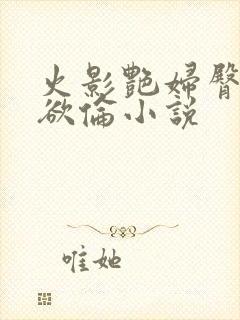 火影艷婦臀
欲倫小說
唯她